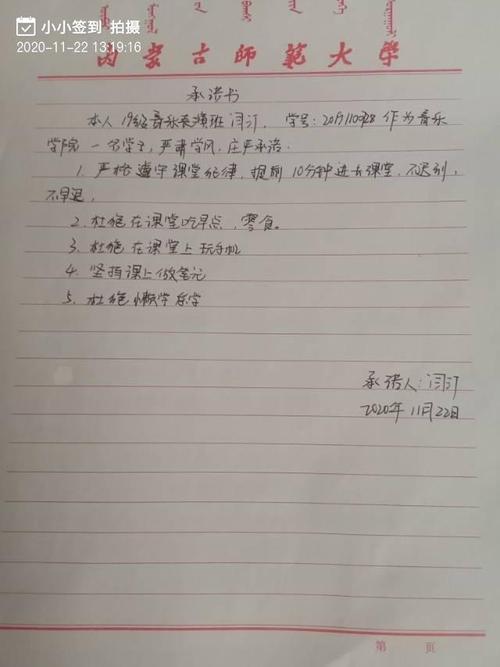 小小签到 拍摄
2020-11-22 13:19:16
内蒙古师范大学
承诺书
本人 19级音乐表演班 闫汀, 学号: 作为音乐
学院一名学生,严肃学风,庄严承诺:
1. 严格遵守课堂纪律,提前10分钟进去课堂,不迟到,
不早退,
2. 杜绝在课堂吃早点,零食。
3. 杜绝在课堂上玩手机
4. 坚持课上做笔记
5. 杜绝懒学怠学
承诺人:闫汀
2020年11月22日
第 页